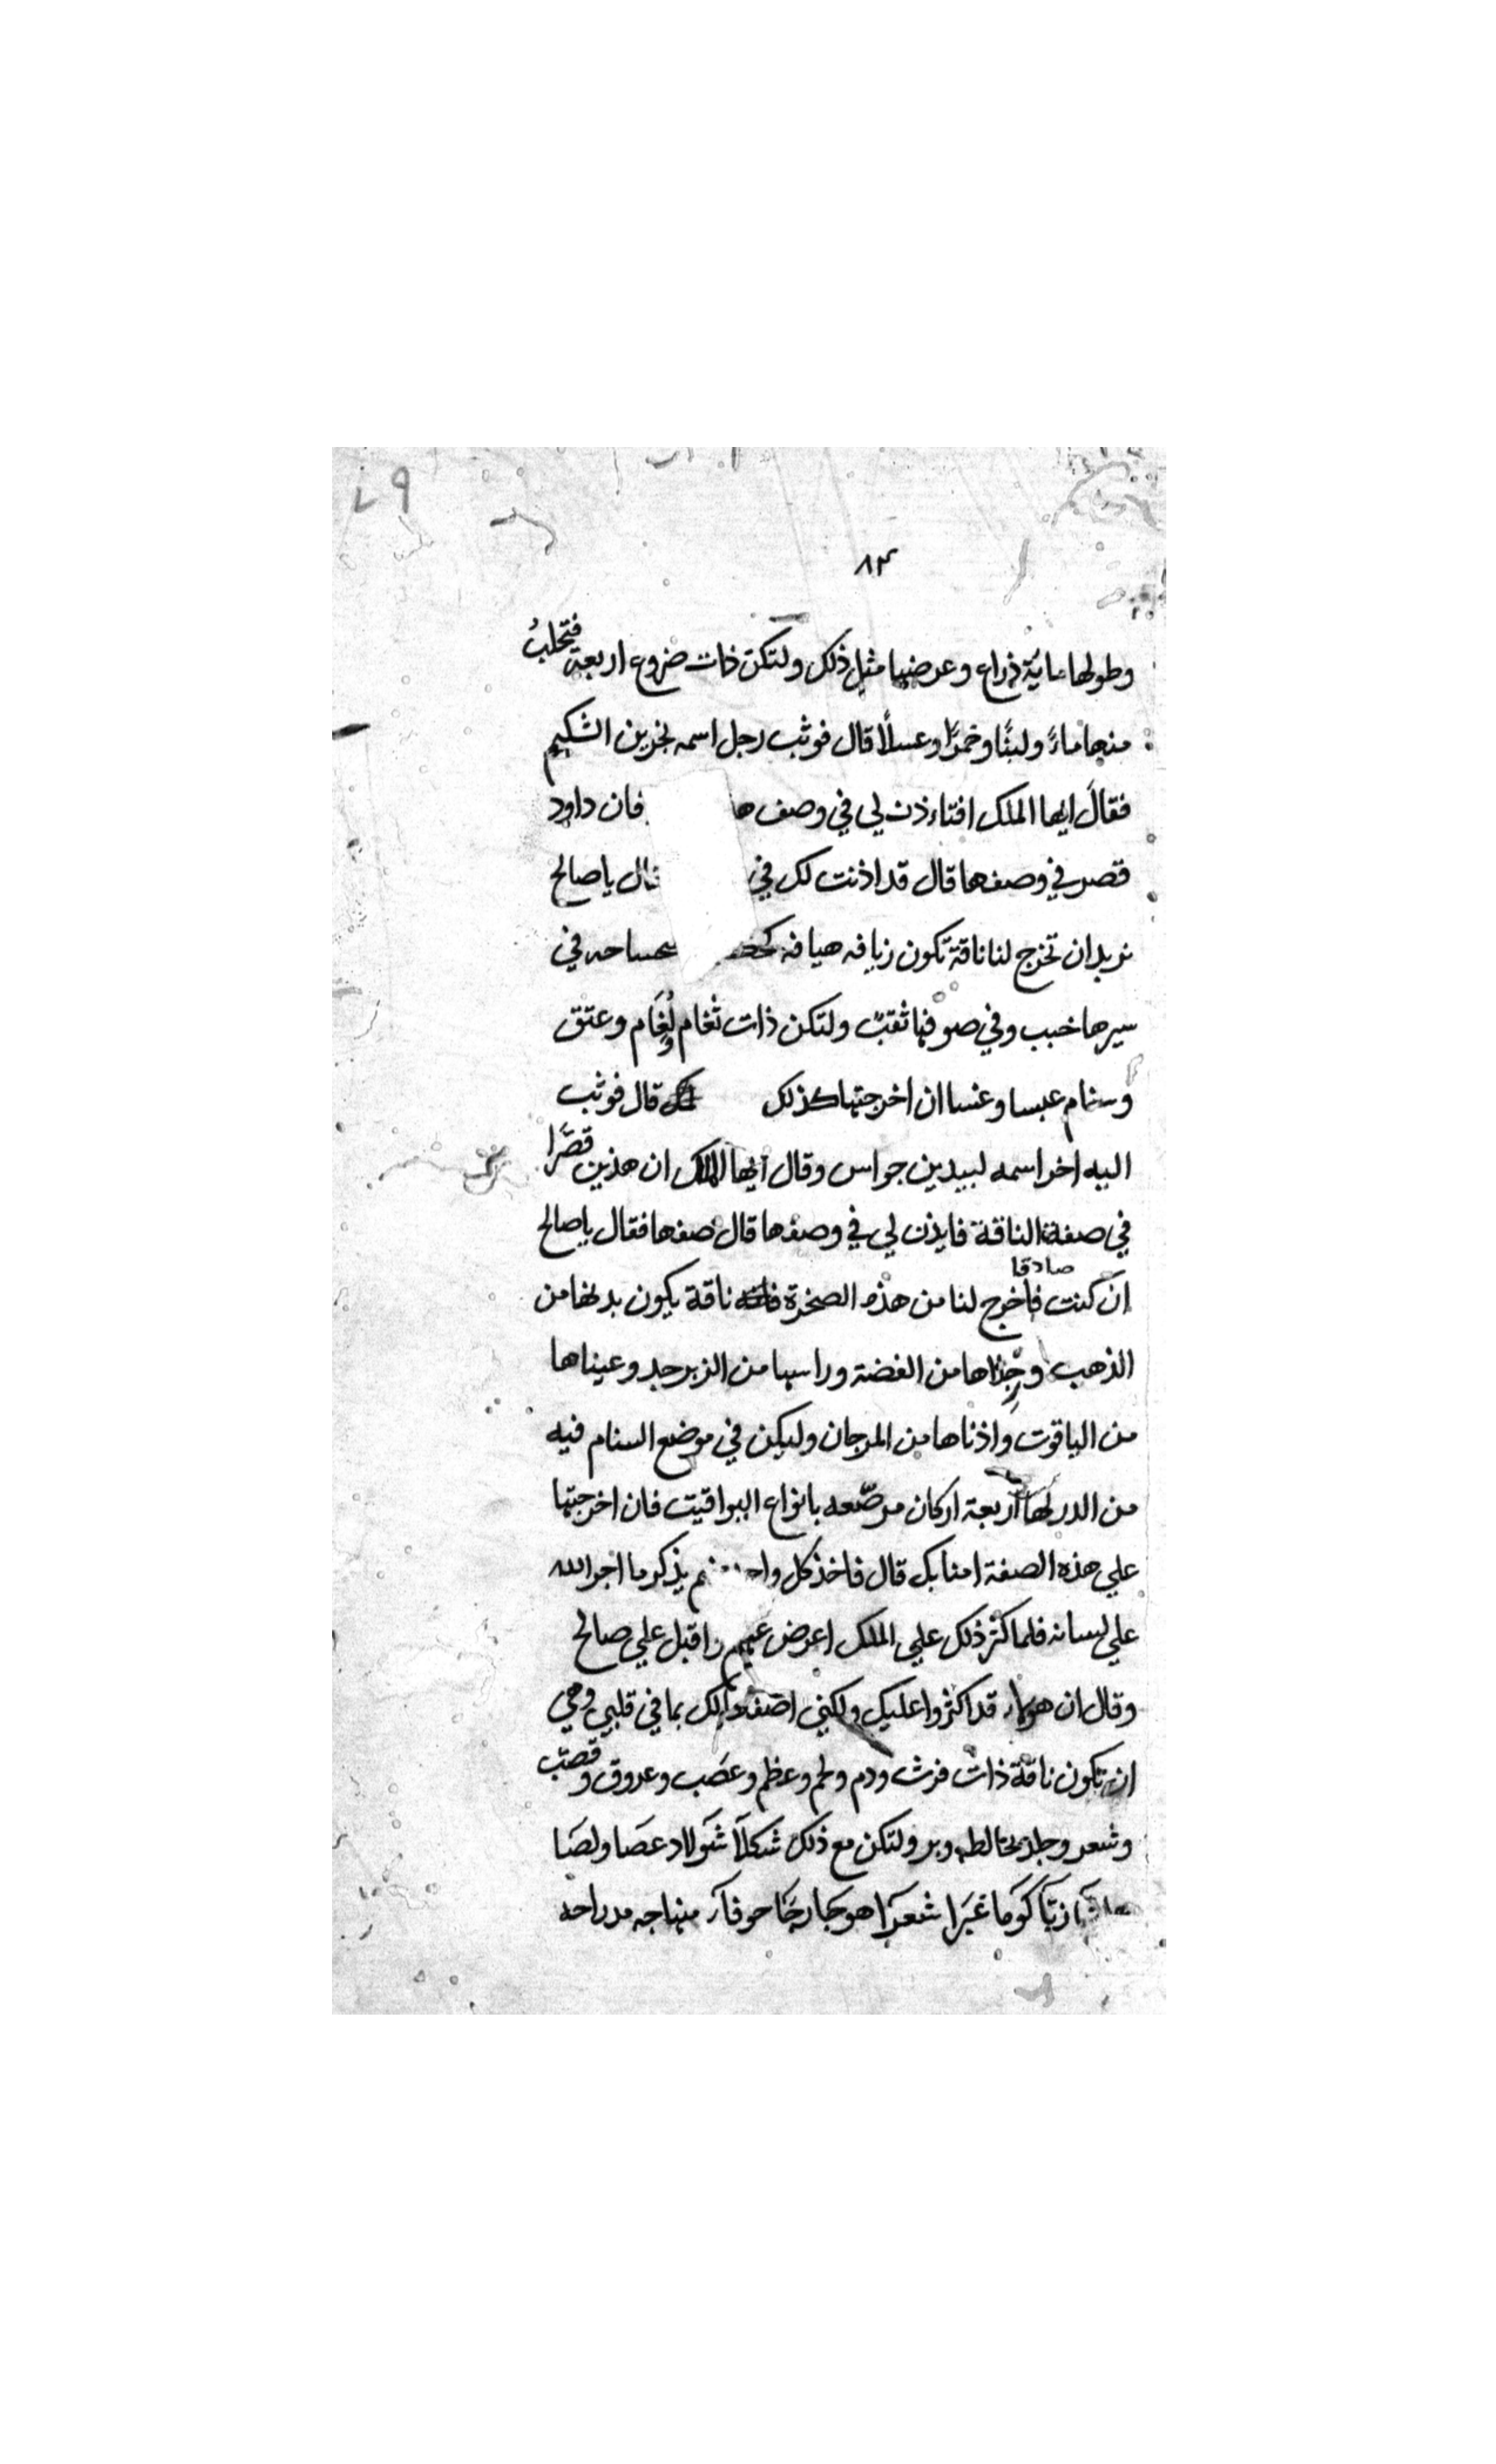 ٧٩
٨٣
وطولها ماية ذراع وعرضها مثل ذلك ولتكن ذات ضروع اربعة فتحلب
منها ماءً ولبنًا وخمرًا وعسلًا قال فوثب رجل اسمه بن الشكيم
فقال ايها الملك افتاءذن لي في وصف فان داود
قصر في وصفها قال قد اذنت لك في قال يا صالح
نريد ان تخرج لنا ناقة تكون زيافه هيافه في
سيرها خبب وفي ولتكن ذات ثغام ولُغَام وعتق
وسنام ان اخرجتها كذلك قال فوثب
اليه اخر اسمه لبيد بن جواس وقال ايها الملك ان هذين قصّرا
في صفة الناقة فايذن لي في وصفها قال صفها فقال يا صالح
ان كنت صادقا فاخرج لنا من هذه الصخرة ناقة يكون بدنها من
الذهب ورجلاها من الفضة وراسها من الزبرجد وعيناها
من الياقوت واذناها من المرجان وليكن في موضع السنام فيه
من الدر لها اربعة اركان مرصّعه بانواع اليواقيت فان اخرجتها
علي هذه الصفة امنا بك قال فاخذ كل يذكر ما اجر الله
علي لسانه فلما كثر ذلك علي الملك اعرض عنهم واقبل علي صالح
وقال ان هولاء قد اكثروا عليك ولكني اصفها لك بما في قلبي وهي
ان تكون ناقة ذات فرث ودم ولحم وعظم وعصب وعروق وقصب
وشعر وجلد يخالطه وبر ولتكن مع ذلك شكلآ شولا
زبّآ كوما غبرا شعرآ